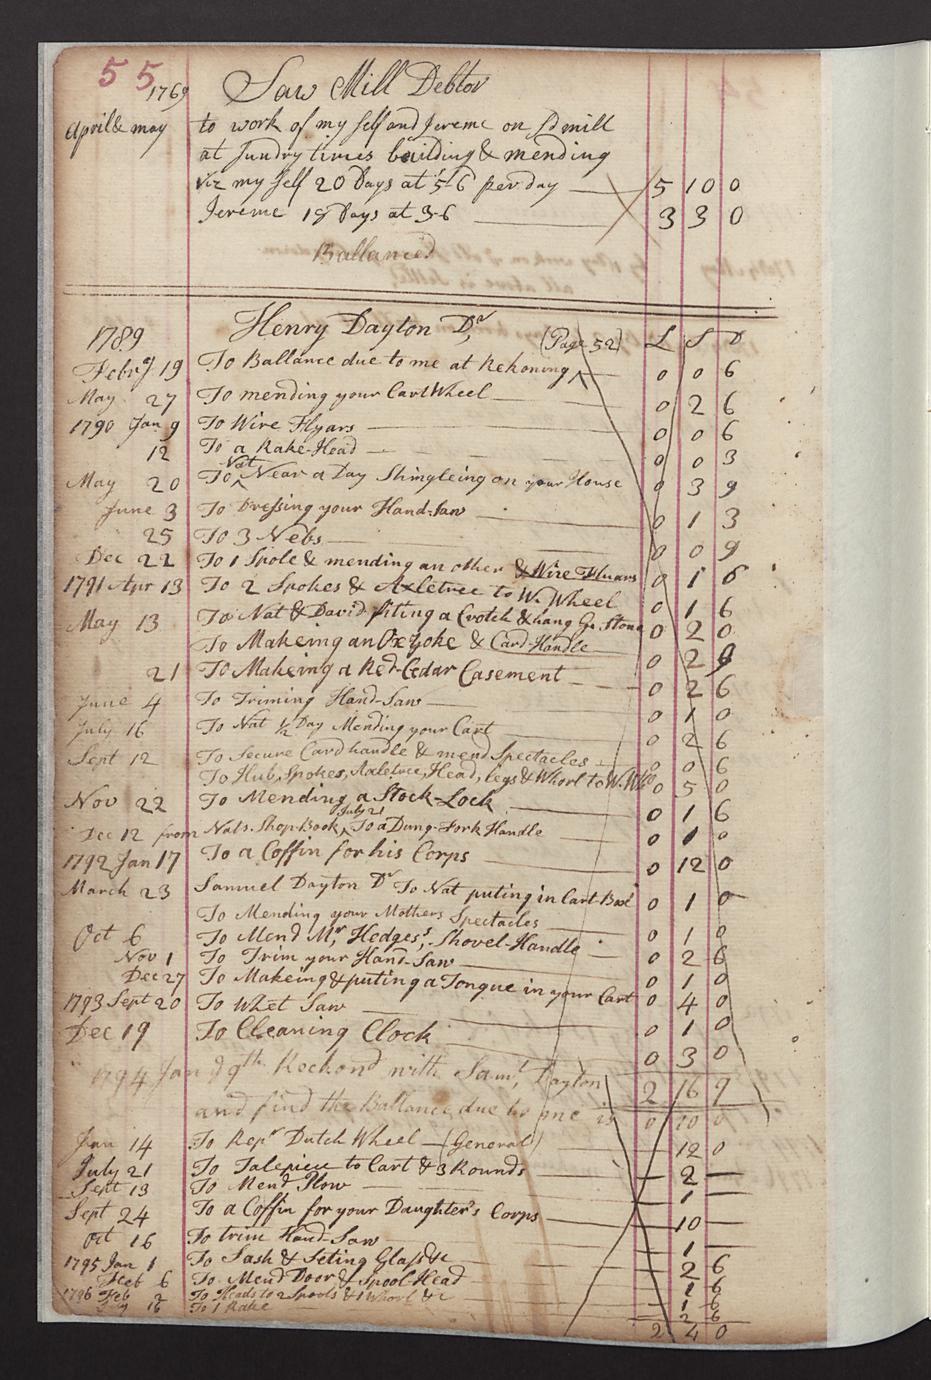 55
1769 Saw Mill Debtor
April & may to work of my self and Jereme on sd mill
at sundry times building & mending
viz my self 20 Days at 5-6 per day 5 10 0
Jereme 18 Days at 3-6 3 3 0
Ballanced
1789 Henry Dayton Dr (Page 52) L S D
Febry 19 To Ballance due to me at Rekoning 0 0 6
May 27 To mending your Cart Wheel 0 2 6
1790 Jan 9 To Wire Flyars 0 0 6
12 To a Rake-Head 0 0 3
May 20 To Nat Near a Day Shingleing on your House 0 3 9
June 3 To Dressing your Hand-saw 0 1 3
25 To 3 Nebs 0 0 9
Dec 22 To 1 Spole & mending an other & Wire Flyars 0 1 6
1791 Apr 13 To 2 Spokes & Axletree to W. Wheel 0 1 6
May 13 To Nat & David fiting a Crotch & hang Gr. Stone 0 2 0
To Makeing an Ox Yoke & Card-Handle 0 2 9
21 To Makeing a Red-Cedar Casement 0 2 6
June 4 To Triming Hand-Saw 0 1 0
July 16 To Nat 1/2 Day Mending your Cart 0 2 6
Sept 12 To Secure Card handle & mend Spectacles 0 0 6
To Hub, Spokes, Axletree, Head, legs & Whorl to W. Whe 0 5 0
Nov 22 To Mending a Stock-Lock 0 1 6
Dec 12 from Nats. Shop-Book, July 21 To a Dung-Fork Handle 0 1 0
1792 Jan 17 To a Coffin for his Corps 0 12 0
March 23 Samuel Dayton Dr To Nat puting in Cart 0 1 0
To Mending your Mothers Spectacles 0 1 0
Oct 6 To Mend Mr Hedges's Shovel-Handle 0 2 6
Nov 1 To Trim your Hand-Saw 0 1 0
Dec 27 To Makeing & puting a Tongue in your Cart 0 4 0
1793 Sept 20 To Whet Saw 0 1 0
Dec 19 To Cleaning Clock 0 3 0
1794 Jan 9th Reckond with Saml Dayton 2 16 9
and find the Ballance due to me is 0 10 0
Jan 14 To Repr Dutch Wheel (General) 12 0
July 21 To Talepiece to Cart & 3 Rounds 2 —
Sept 13 To Mend Plow 1 —
Sept 24 To a Coffin for your Daughter's Corps 10 —
Oct 16 To trim Hand-Saw 1 —
1795 Jan 1 To Sash & Seting Glass &c 2 6
Feb 6 To Mend Door & Spool-Head 1 6
1796 Feb 2 To Heads to 2 Spools & 1 Whorl &c 1 6
July 16 To 1 Rake 2 6
2 4 0